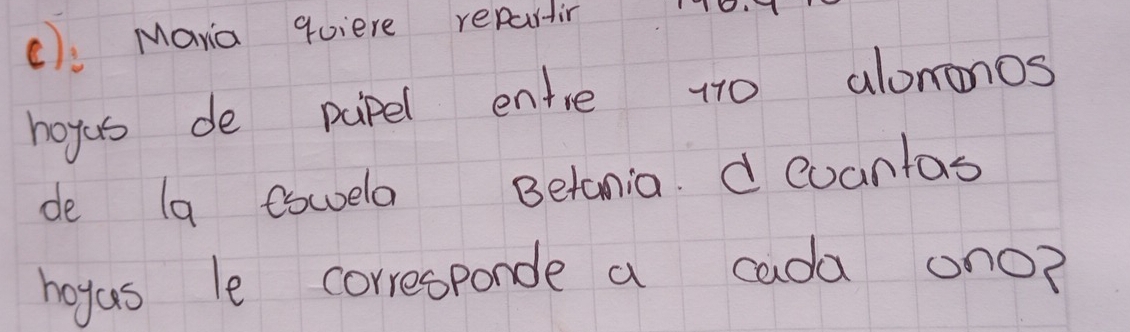 c): Maria quiere repartir
hoyas de papel entre 110 alumnos
de la escuela Betania. d cuantas
hoyas le corresponde a cada uno?